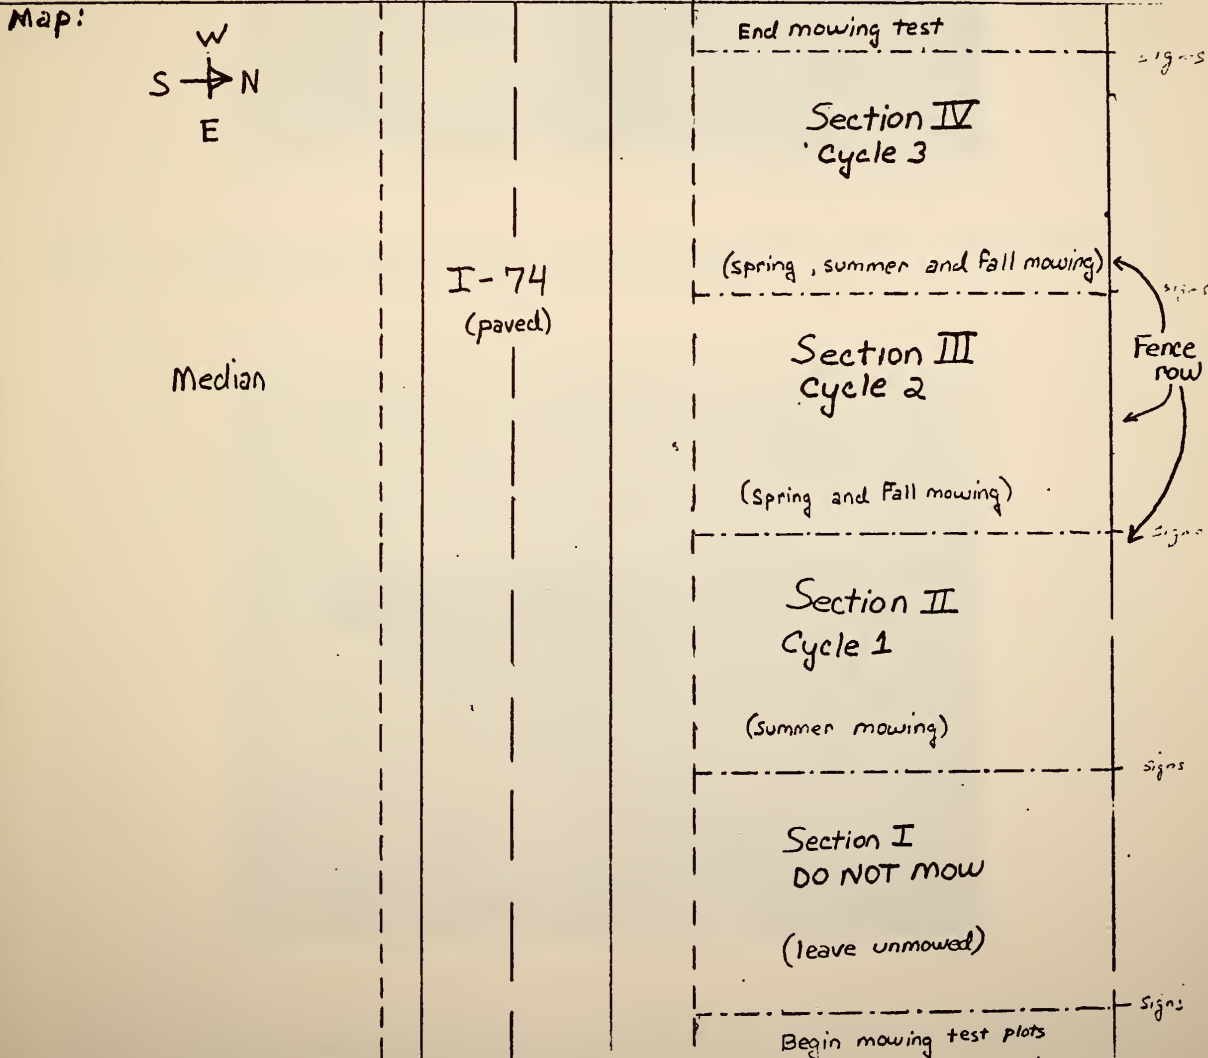 Map:
W
S N
E
End mowing test
signs
Section IV
Cycle 3
(spring, summer and fall mowing)
signs
I-74
(paved)
Median
Section III
Cycle 2
Fence
row
(spring and Fall mowing)
signs
Section II
Cycle 1
(summer mowing)
signs
Section I
DO NOT MOW
(leave unmowed)
Signs
Begin mowing test plots